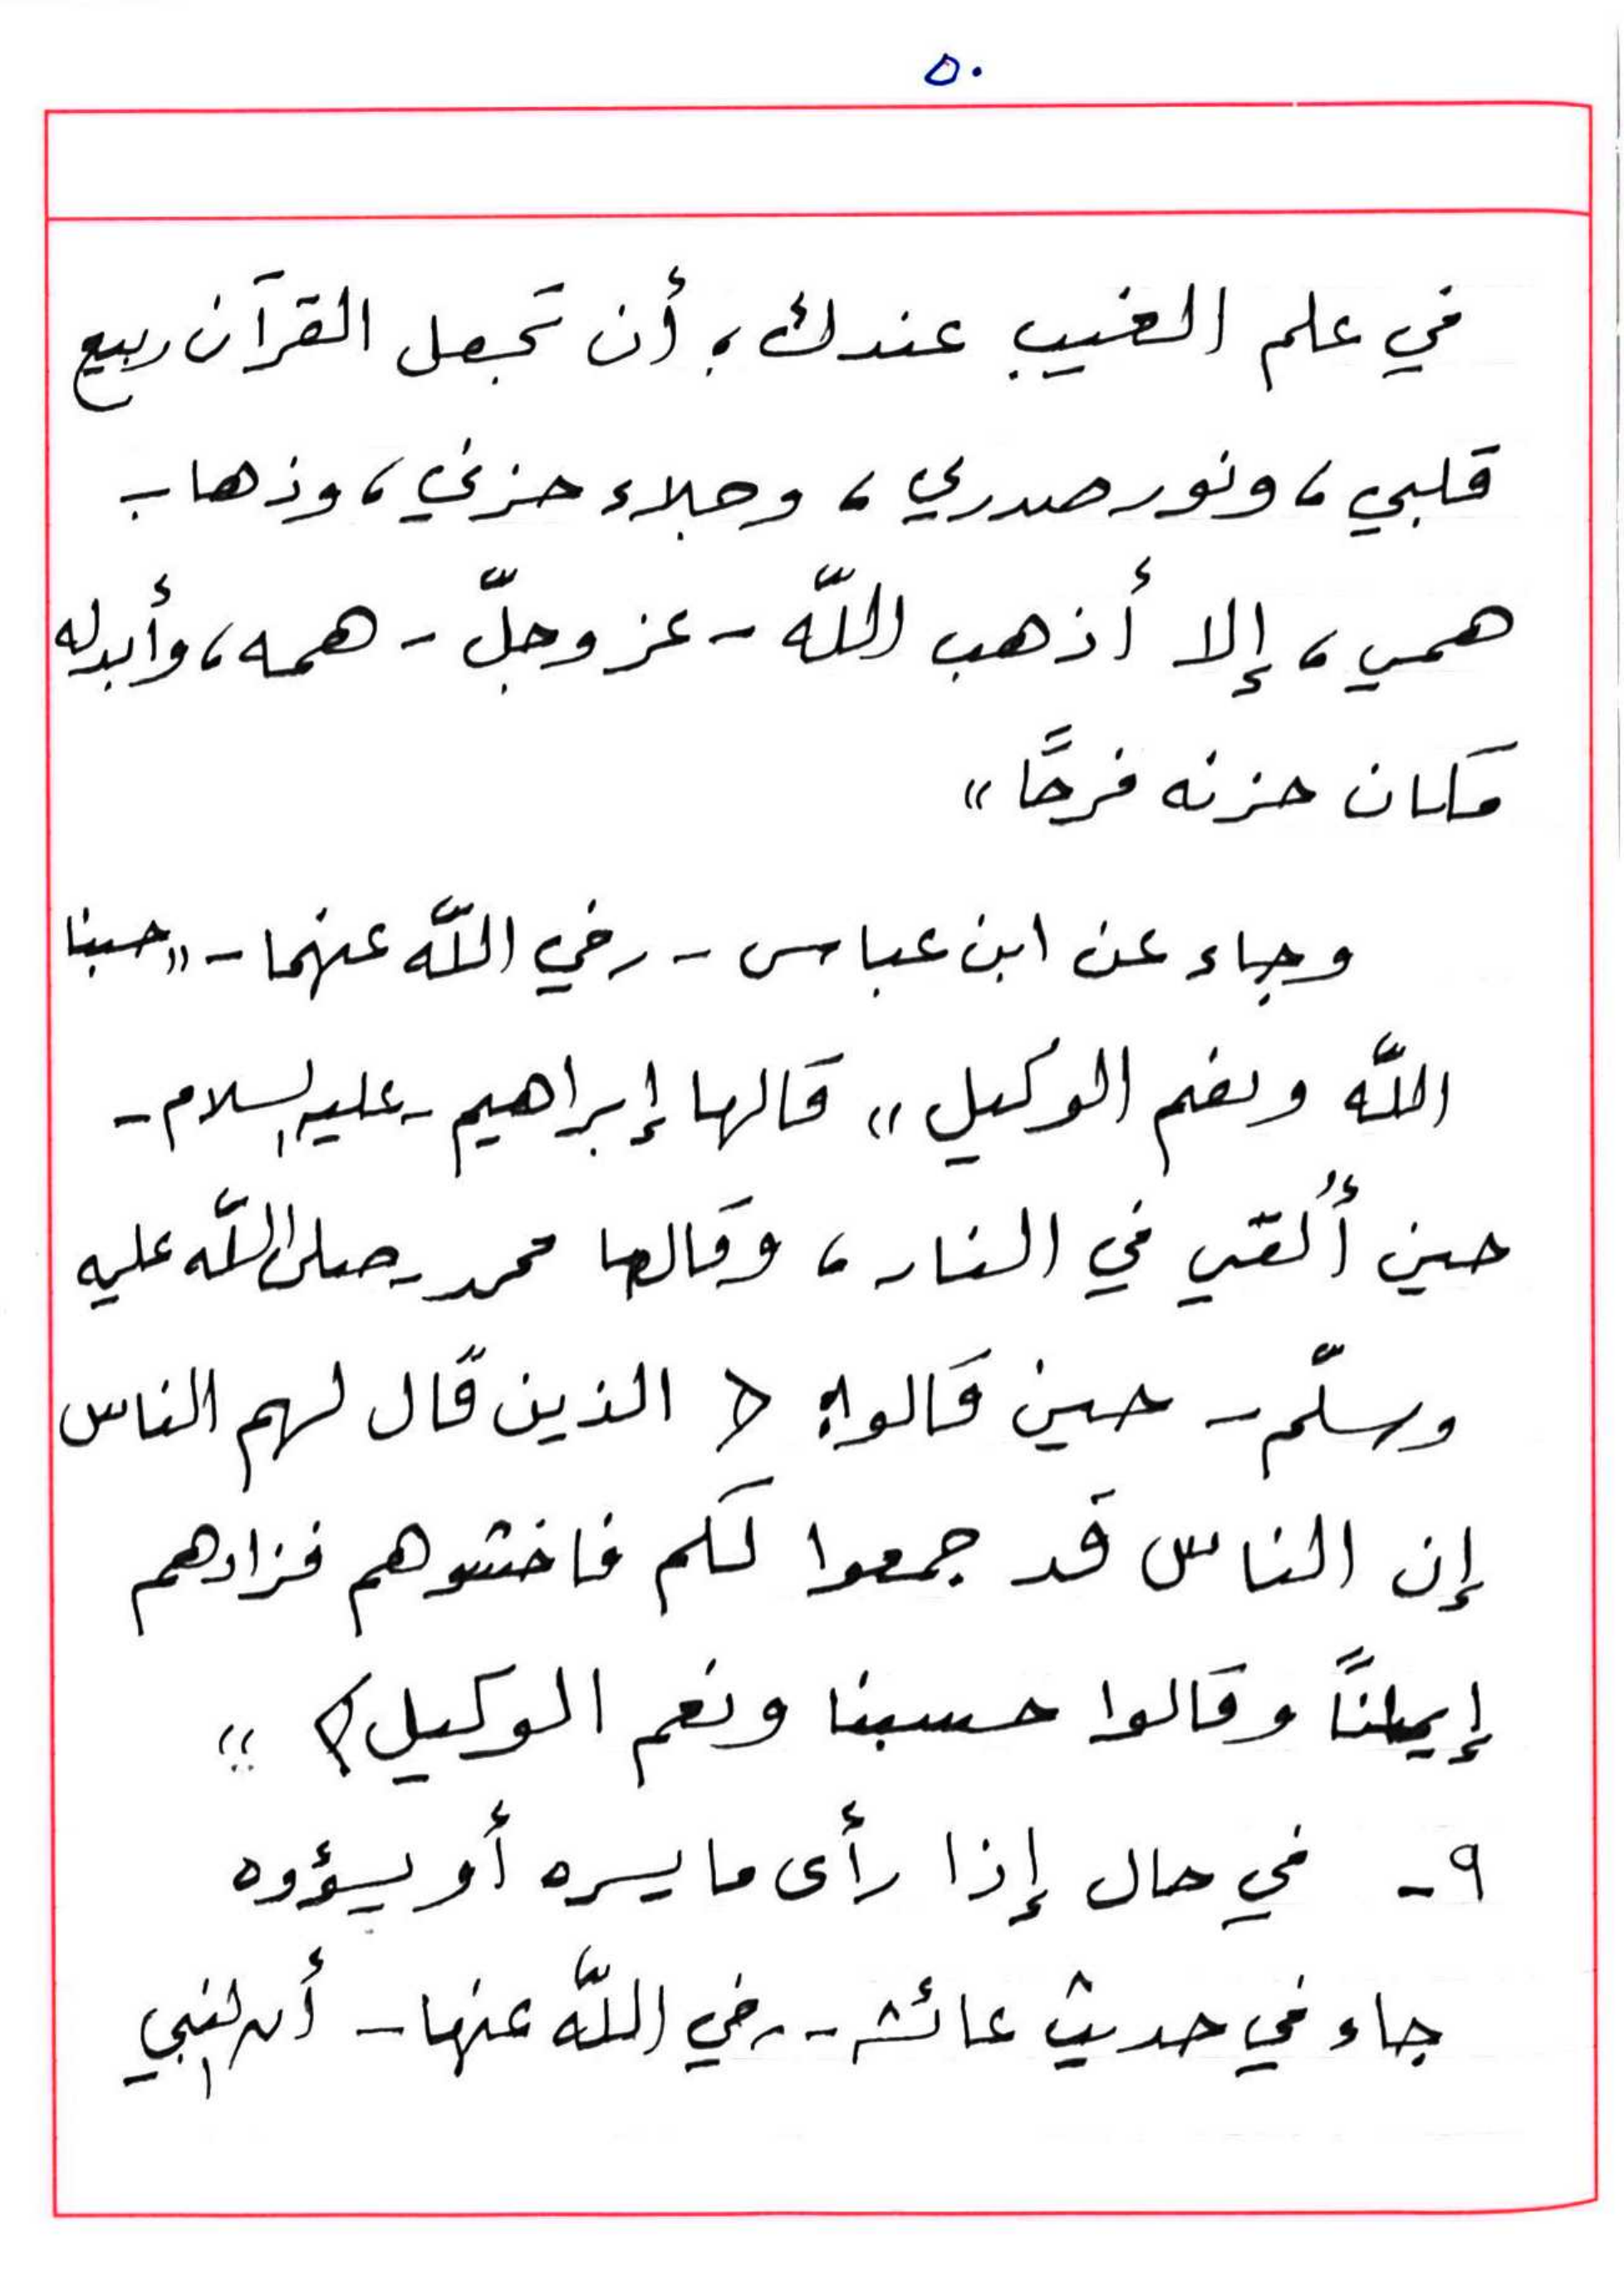 ٥٠
في علم الغيب عندك؛ أن تجعل القرآن ربيع
قلبي، ونور صدري، وجلاء حزني، وذهاب
همي، إلا أذهب اللّه - عز وجلّ - همه، وأبدله
مكان حزنه فرحًا"
وجاء عن ابن عباس - رضي اللّه عنهما - "حسبنا
اللّه ونعم الوكيل" قالها إبراهيم - عليه السلام -
حين أُلقي في النار، وقالها محمد - صلى اللّه عليه
وسلّم - حين قالوا: ﴿ الذين قال لهم الناس
إن الناس قد جمعوا لكم فاخشوهم فزادهم
إيمانًا وقالوا حسبنا ونعم الوكيل ﴾ "
٩- في حال إذا رأى ما يسره أو يسؤوه
جاء في حديث عائشة - رضي اللّه عنها - أن النبي